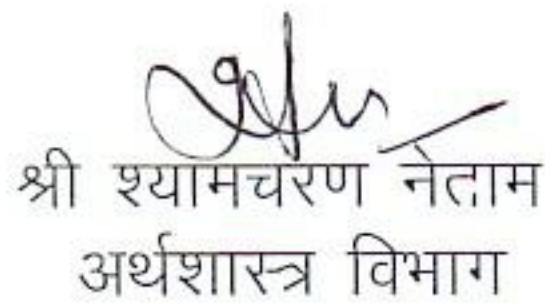 श्री श्यामचरण नेताम
अर्थशास्त्र विभाग